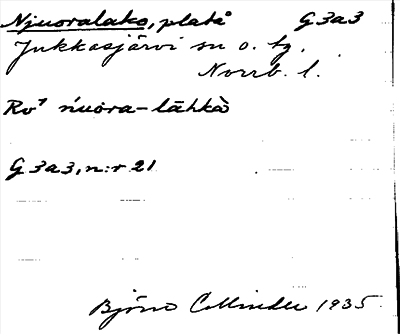 Njuoralako, platå G 3a3
Jukkasjärvi sn o. tg.
Norrb. l.
Ro⁷ ńuòra-lāhkà
G 3a3, n:r 21
Björn Collinder 1935